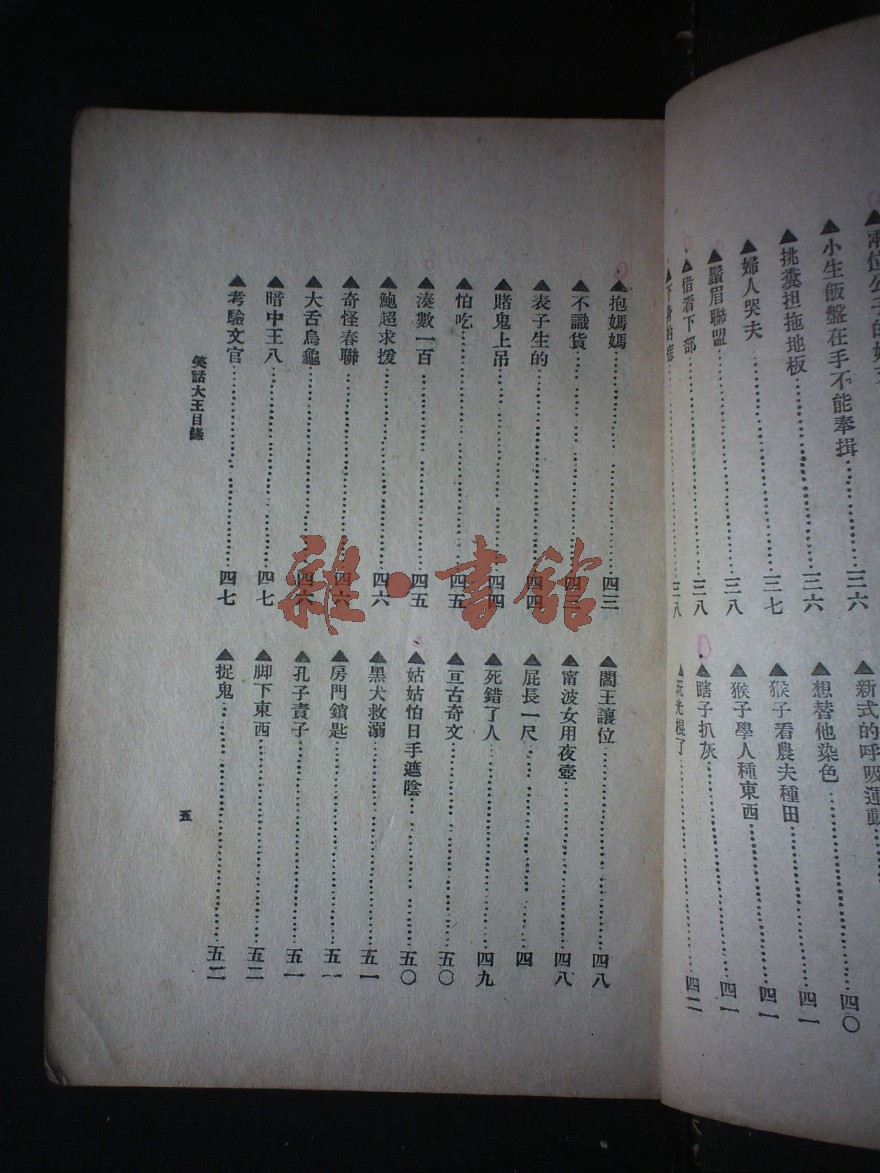 ▲兩位公子的
▲小生飯盤在手不能奉揖……三六
▲挑糞担拖地板……三六
▲婦人哭夫……三七
▲鬚眉聯盟……三八
▲借看下部……三八
……三八
▲新式的呼吸運動
▲想替他染色……四〇
▲猴子看農夫種田……四一
▲猴子學人種東西……四一
▲瞎子扒灰……四一
▲玩光棍了……四二
▲抱媽媽……四三
▲不識貨……四三
▲表子生的……四四
▲賭鬼上吊……四四
▲怕吃……四五
▲湊數一百……四五
▲鮑超求援……四六
▲奇怪春聯……四六
▲大舌烏龜……四六
▲暗中王八……四七
▲考驗文官……四七
▲閻王讓位……四八
▲甯波女用夜壺……四八
▲屁長一尺……四
▲死錯了人……四九
▲亘古奇文……五〇
▲姑姑怕日手遮陰……五〇
▲黑犬救溺……五一
▲房門鎖匙……五一
▲孔子責子……五一
▲脚下東西……五二
▲捉鬼……五二
笑話大王目錄
五
雜·書館